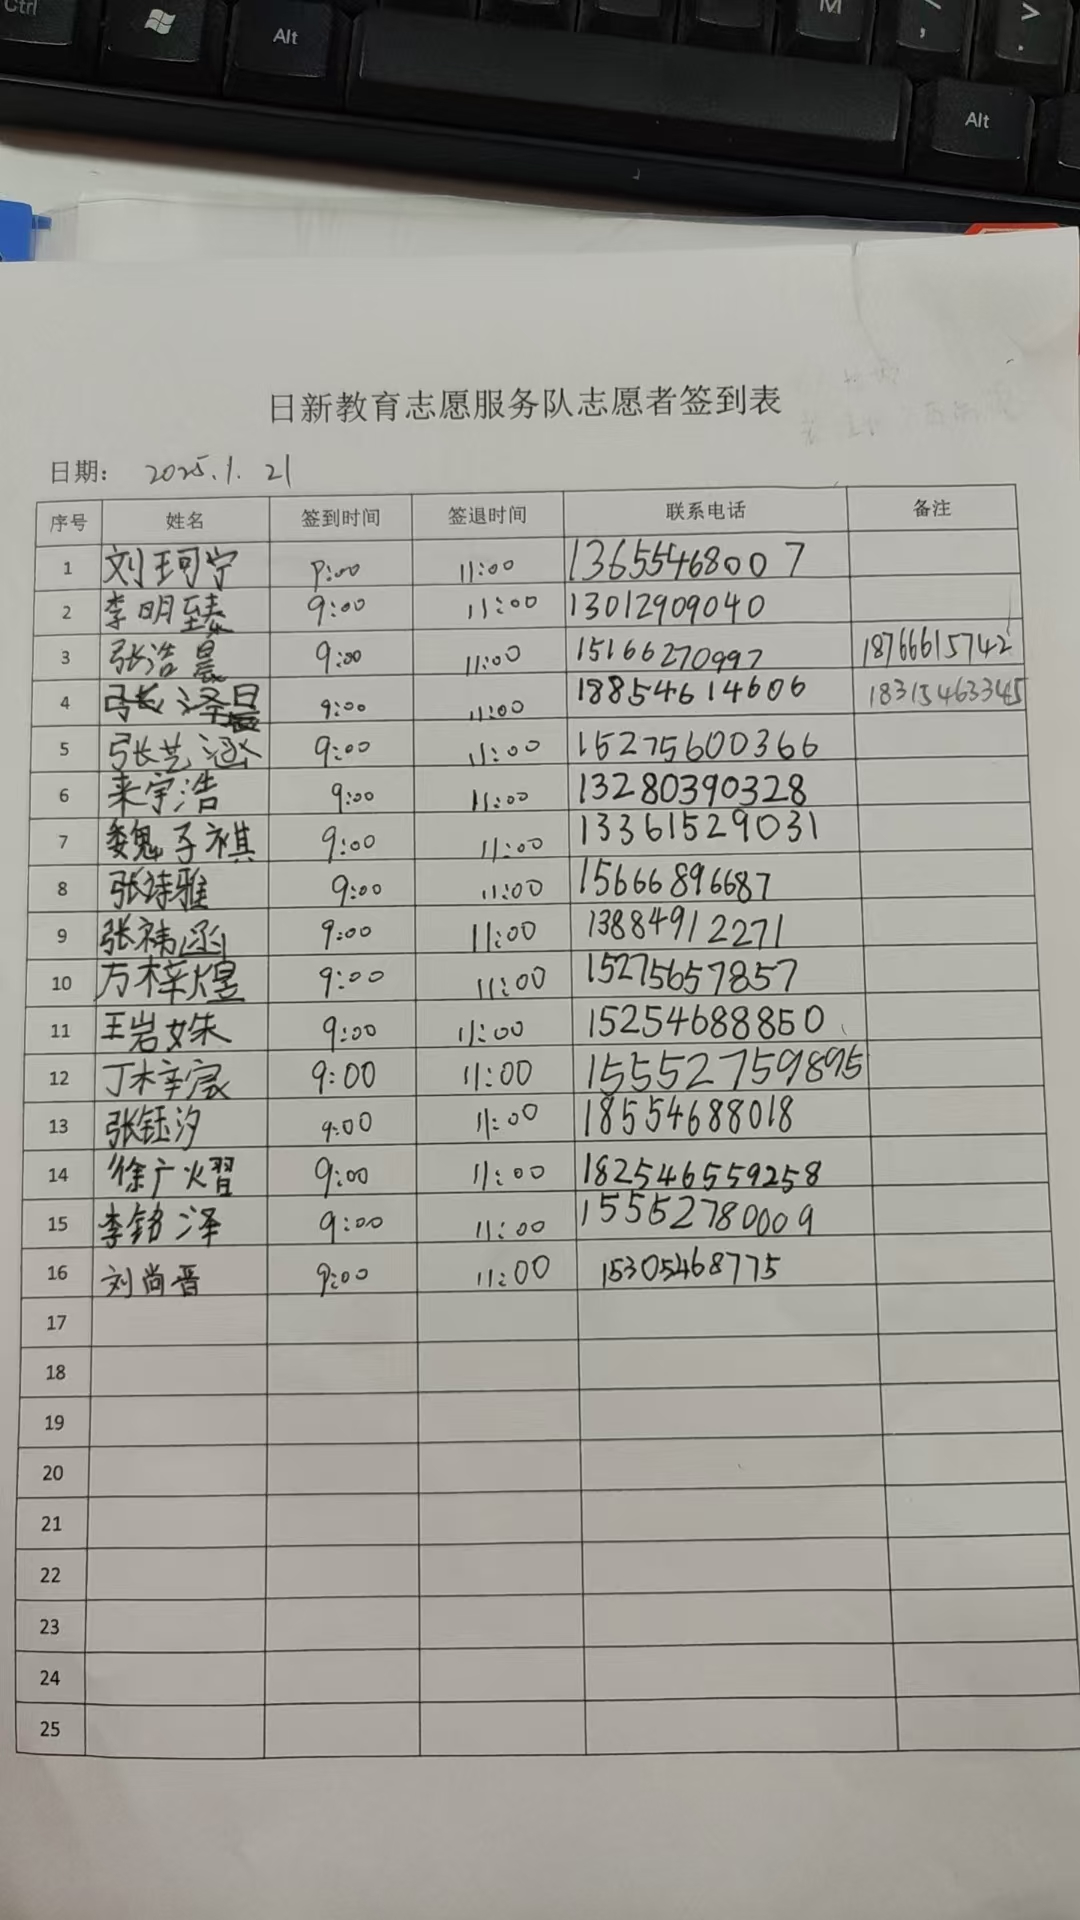 Ctrl Alt M < , > .
Alt
日新教育志愿服务队志愿者签到表
日期: 2025.1.21
序号 姓名 签到时间 签退时间 联系电话 备注
1 刘珂宁 9:00 11:00 13655468007
2 李明臻 9:00 11:00 13012909040
3 张浩晨 9:00 11:00 15166270997 18766615742
4 张泽晨 9:00 11:00 18854614606 183154633345
5 张艺涵 9:00 11:00 15275600366
6 来宇浩 9:00 11:00 13280390328
7 魏子祺 9:00 11:00 13361529031
8 张诗雅 9:00 11:00 15666896687
9 张祎涵 9:00 11:00 13884912271
10 万梓煜 9:00 11:00 15275657857
11 王岩姝 9:00 11:00 15254688850
12 丁梓宸 9:00 11:00 155527759895
13 张钰汐 9:00 11:00 18554688018
14 徐广熠 9:00 11:00 182546559258
15 李铭泽 9:00 11:00 15552780009
16 刘尚晋 9:00 11:00 15305468775
17
18
19
20
21
22
23
24
25